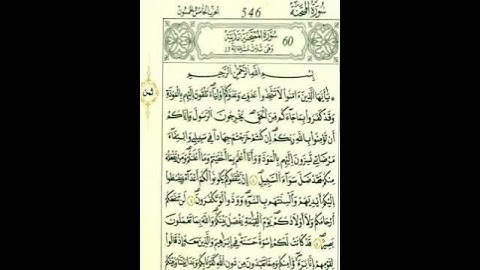 سورة الممتحنة 546 الحزب الخامس والخمسون
60 سورة الممتحنة مدنية
بسم الله الرحمن الرحيم
ثمن
يأيها الذين ءامنوا لا تتخذوا عدوي وعدوكم أولياء تلقون إليهم بالمودة
وقد كفروا بما جاءكم من الحق يخرجون الرسول وإياكم
أن تومنوا بالله ربكم إن كنتم خرجتم جهادا في سبيلي وابتغاء
مرضاتي تسرون إليهم بالمودة وأنا أعلم بما أخفيتم وما أعلنتم ومن يفعله
منكم فقد ضل سواء السبيل إن يثقفوكم يكونوا لكم أعداء ويبسطوا
إليكم أيديهم وألسنتهم بالسوء وودوا لو تكفرون لن تنفعكم
أرحامكم ولا أولادكم يوم القيمة يفصل بينكم والله بما تعملون
بصير قد كانت لكم إسوة حسنة في إبرهيم والذين معه إذ قالوا
لقومهم إنا برءاؤا منكم ومما تعبدون من دون الله كفرنا بكم وبدا بيننا وبينكم